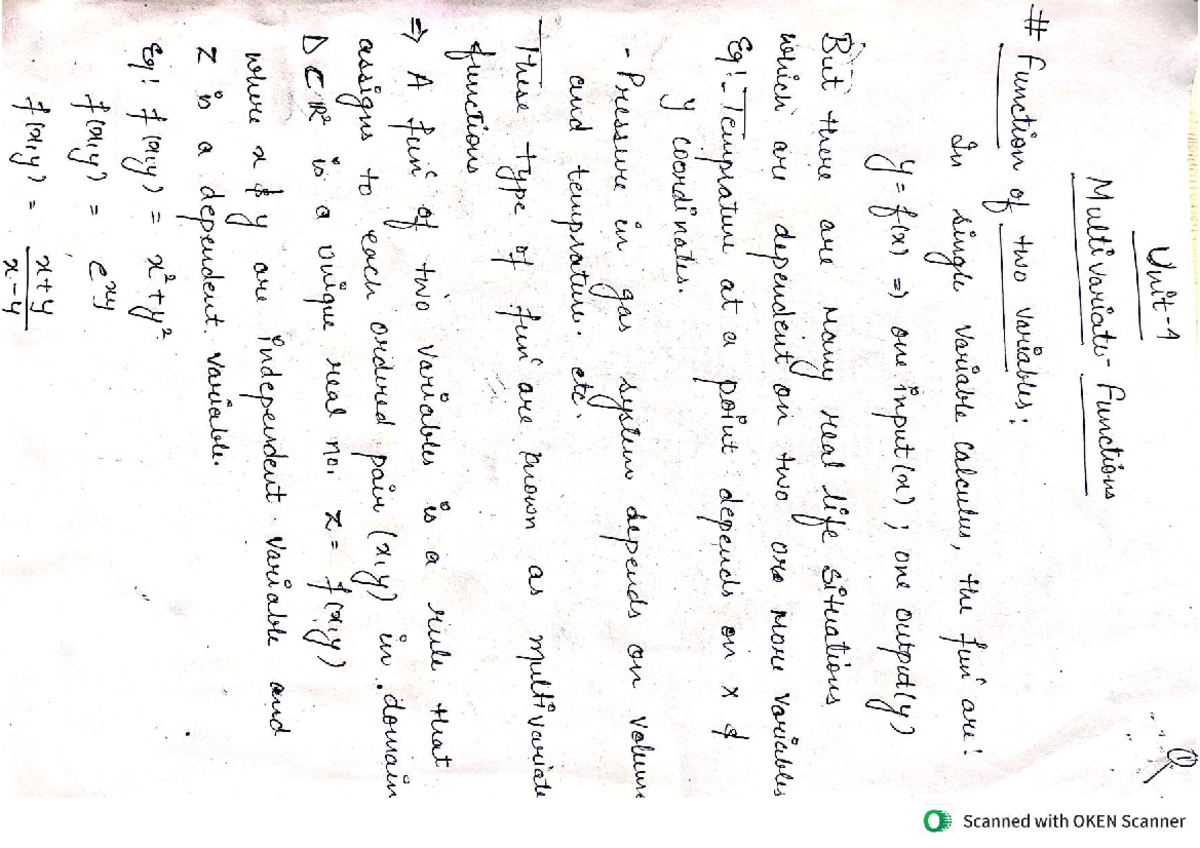 ①
Unit-4
Multivariate-Functions
# Function of two variables:
In single variable calculus, the funⁿ are:
y = f(x) => one input(x) ; one output(y)
But there are many real life situations
which are dependent on two ore more variables
Eg:- Temprature at a point depends on x &
y coordinates.
- Pressure in gas system depends on volume
and temprature. etc.
These type of funⁿ are known as multivariate
functions
=> A funⁿ of two variables is a rule that
assigns to each ordered pair (x,y) in domain
D ⊂ ℝ² is a unique real no. z = f(x,y)
where x & y are independent variable and
z is a dependent variable.
Eg: f(x,y) = x² + y²
f(x,y) = e^xy
f(x,y) = x+y / x-y
Scanned with OKEN Scanner